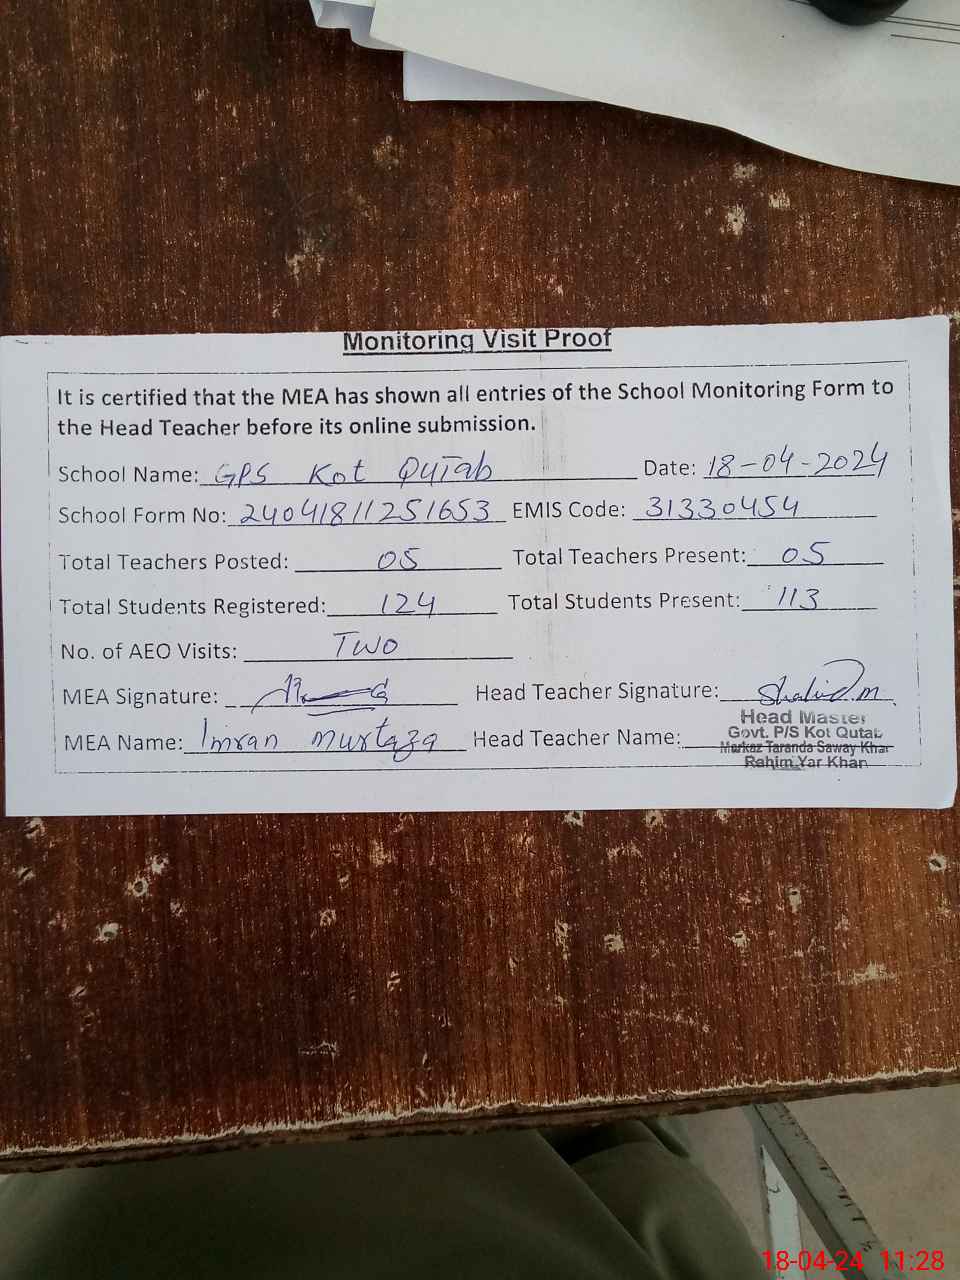 Monitoring Visit Proof
It is certified that the MEA has shown all entries of the School Monitoring Form to
the Head Teacher before its online submission.
School Name: GPS Kot Qutab Date: 18-04-2024
School Form No: 24041811251653 EMIS Code: 31330454
Total Teachers Posted: 05 Total Teachers Present: 05
Total Students Registered: 124 Total Students Present: 113
No. of AEO Visits: Two
MEA Signature: Head Teacher Signature: Shahid.m
MEA Name: Imran murtaza Head Teacher Name:
Head Master
Govt. P/S Kot Qutab
Markaz Taranda Saway Khan
Rahim Yar Khan
18-04-24 11:28